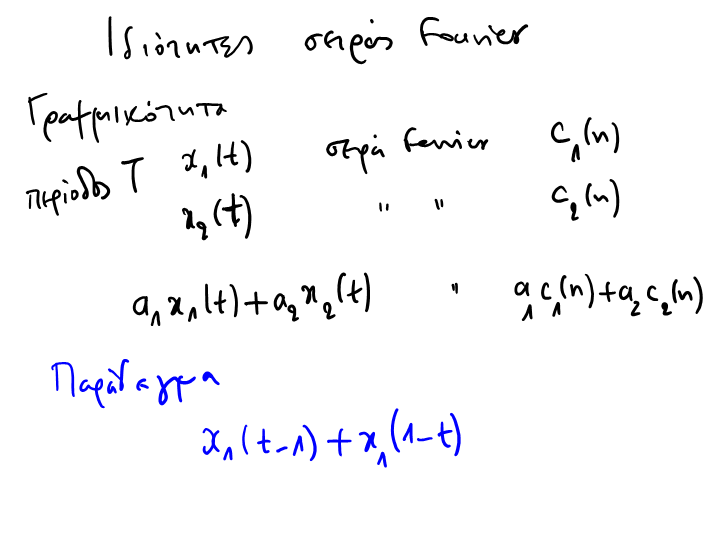 Ιδιότητες σειράς Fourier
Γραμμικότητα
περίοδος T x₁(t) σειρά Fourier c₁(n)
x₂(t) " " c₂(n)
a₁x₁(t)+a₂x₂(t) " a₁c₁(n)+a₂c₂(n)
Παράδειγμα
x₁(t-1)+x₁(1-t)